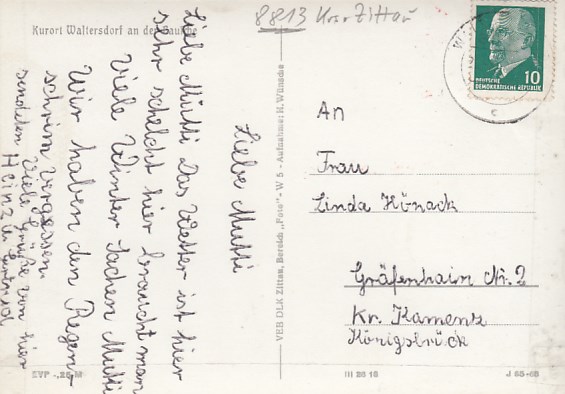 8813 Kr. Zittau
Kurort Waltersdorf an der Lausche
Liebe Mutti
Liebe Mutti Das Wetter ist hier
sehr schelcht hier braucht man
Viele Winter sachen Mutti
Wir haben den Regen-
schirm vergessen.
Viele Grüße von hier
sendeten Heinz u.
VEB DLK Zittau, Bereich „Foto" - W 5 - Aufnahme: H. Wünsche
DEUTSCHE
DEMOKRATISCHE REPUBLIK
10
An
Frau
Linda Könack
Gräfenhain Nr. 2
Kr. Kamenz
Königsbrück
EVP -,25 M
III 28 18